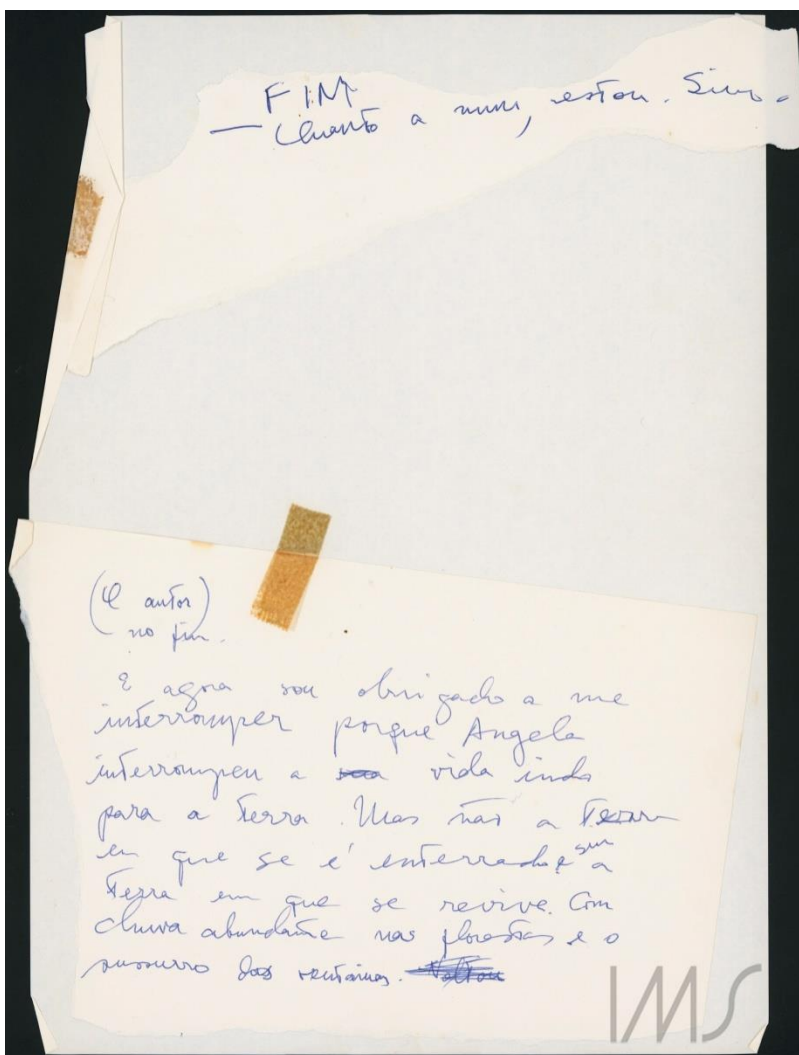 FIM
— Quanto a mim, estou. Sim.
(O autor)
no fim.
E agora sou obrigado a me
interromper porque Angela
interrompeu a vida indo
para a terra. Mas não a terra
em que se é enterrado e sim a
terra em que se revive. Com
chuva abundante nas florestas e o
sussurro das ventanias.
IMS